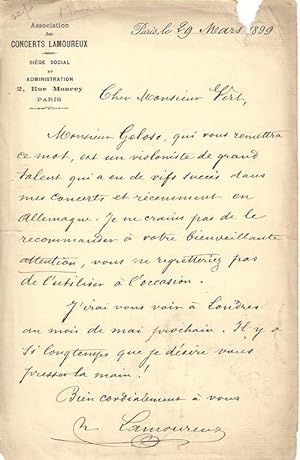 Association
des
CONCERTS LAMOUREUX
SIÈGE SOCIAL
ET
ADMINISTRATION
2, Rue Moncey
PARIS
Paris, le 29 Mars 1899
Cher Monsieur Vert,
Monsieur Geloso, qui vous remettra
ce mot, est un violoniste de grand
talent qui a eu de vifs succès dans
mes concerts et récemment en
Allemagne. Je ne crains pas de le
recommander à votre bienveillante
attention, vous ne regretteriez pas
de l'utiliser à l'occasion.
J'irai vous voir à Londres
au mois de mai prochain. Il y a
si longtemps que je désire vous
presser la main!
Bien cordialement à vous
Lamoureux